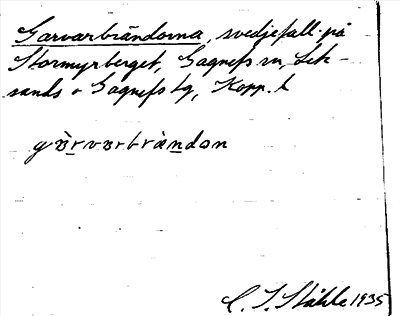 Garvarbrändorna, svedjefall på
Stormyrberget, Gagnefs sn, Lek-
sands o Gagnefs tg, Kopp. l
gàrvarbrändon
C. I. Ståhle 1935